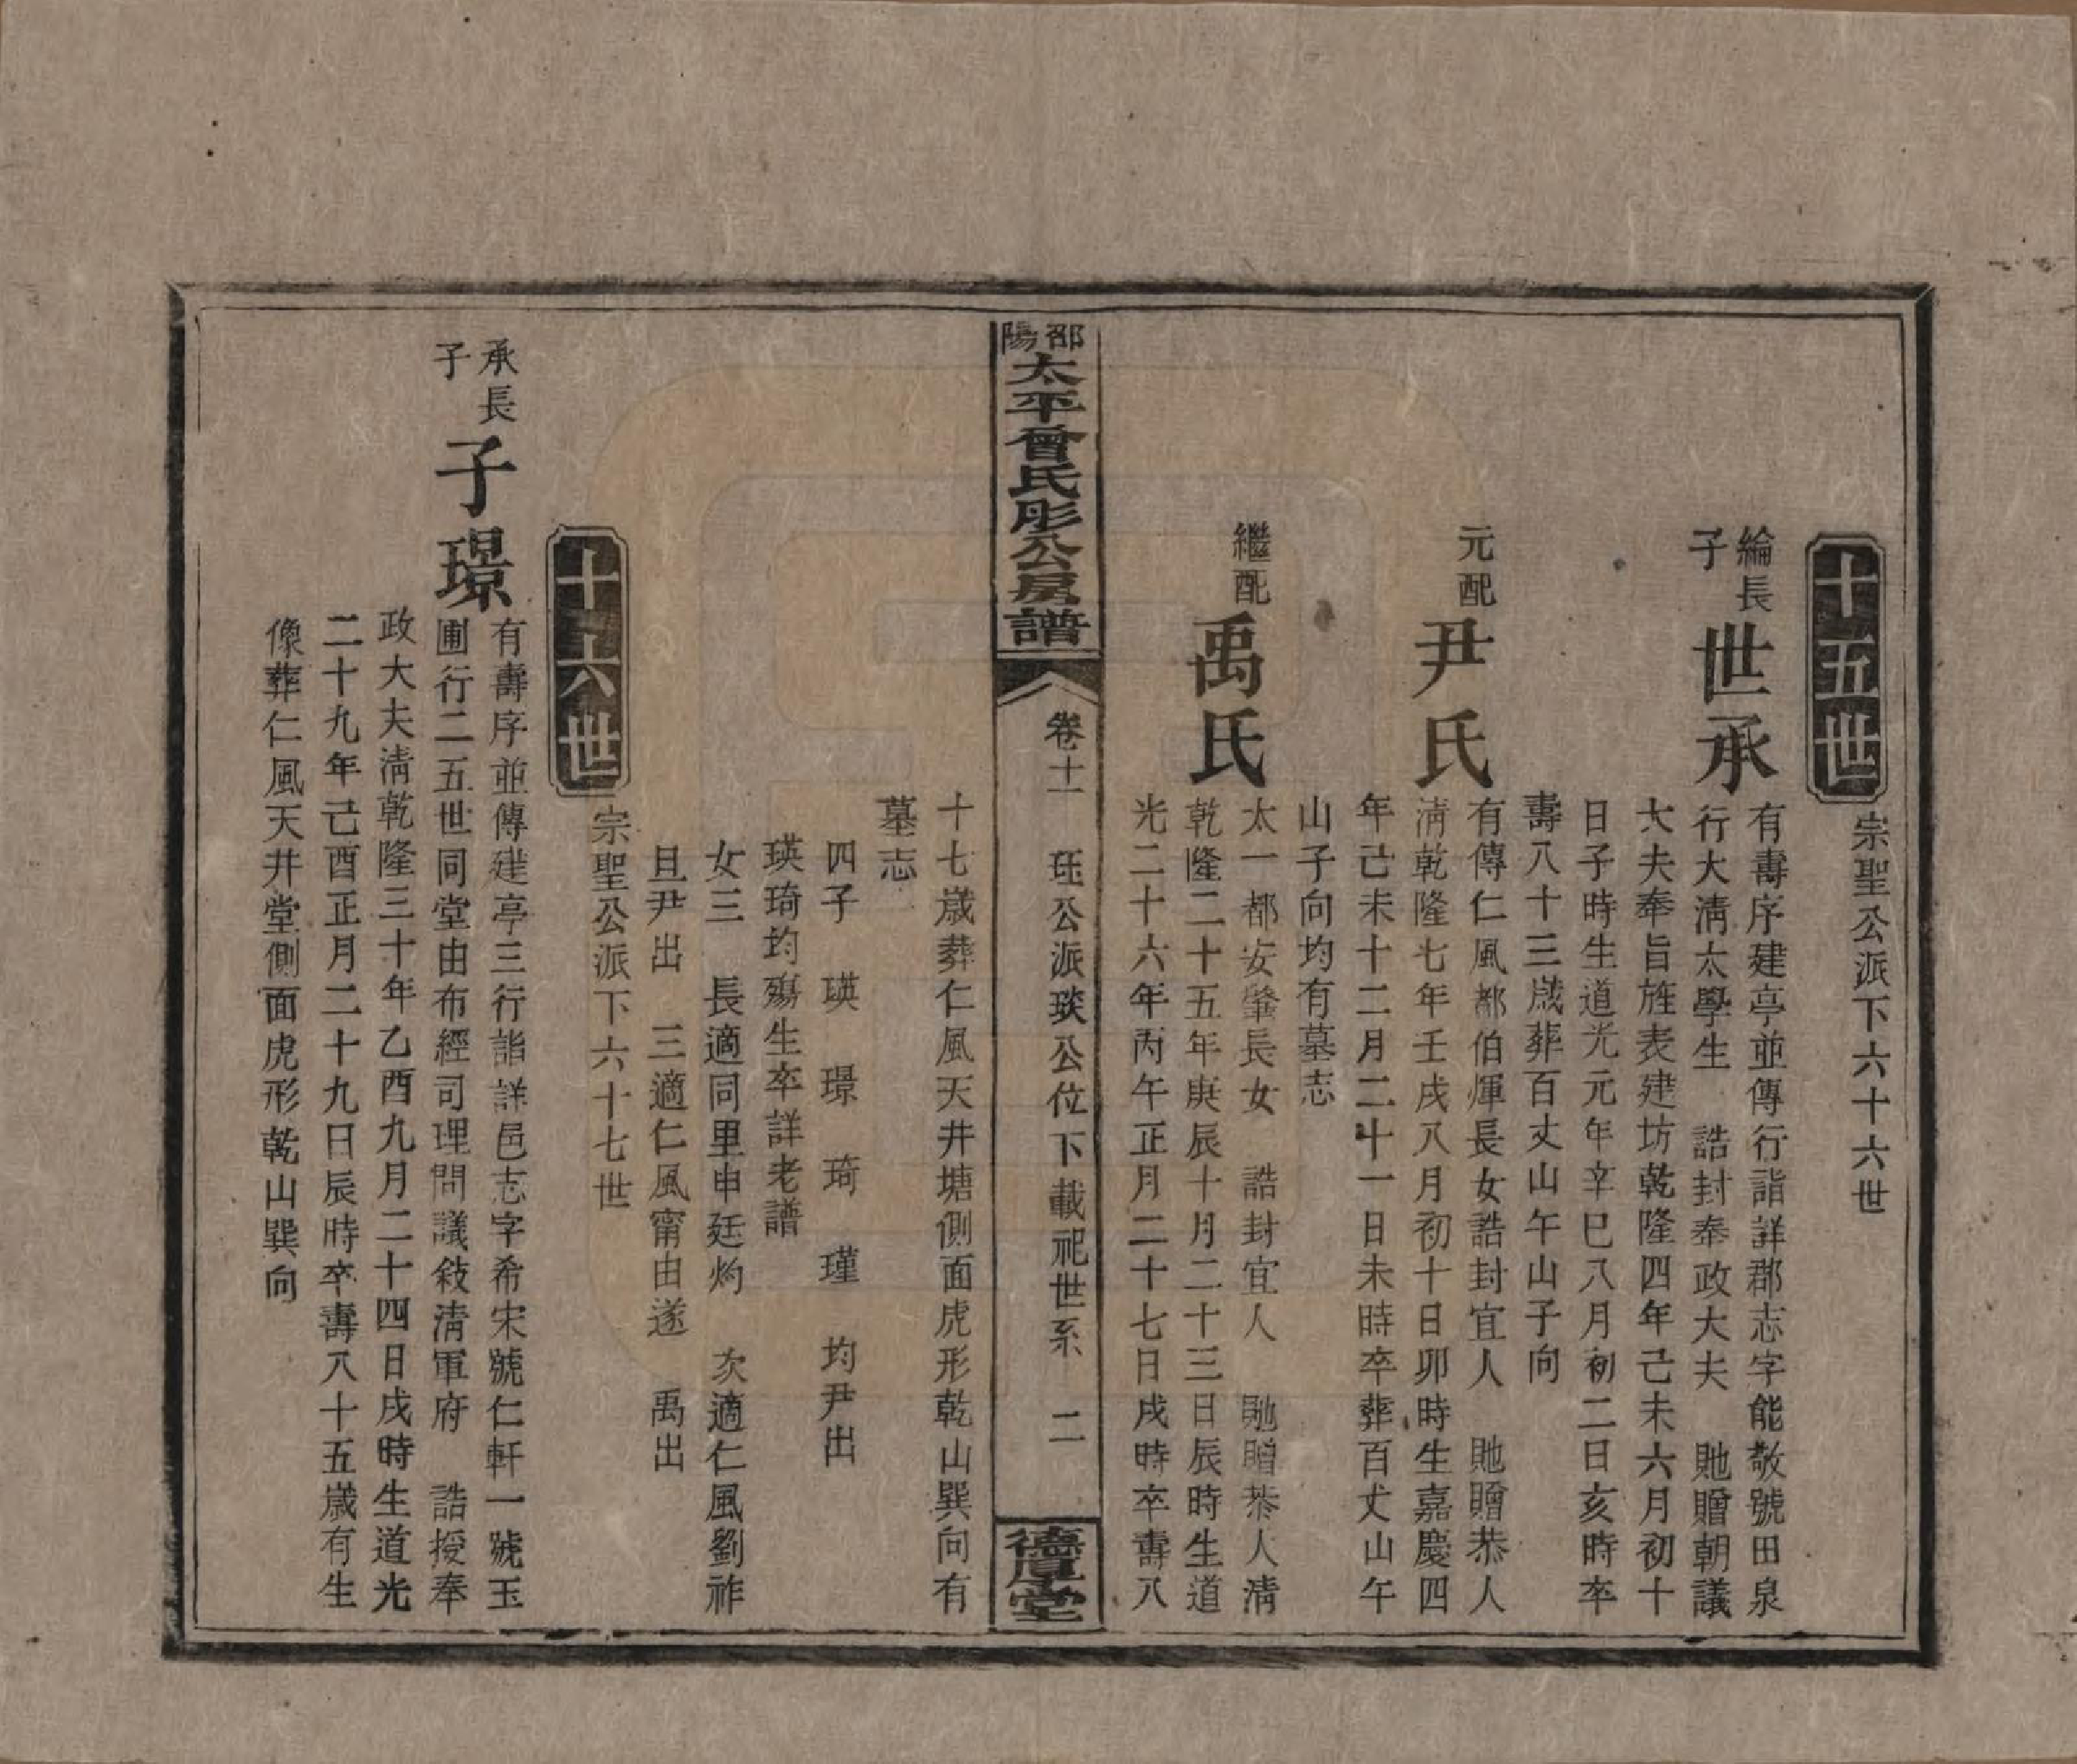 十五世
宗聖公派下六十六世
綸長子
世承
有壽序建亭並傳行詣詳郡志字能敬號田泉
行大清太學生 誥封奉政大夫 貤贈朝議
大夫奉旨旌表建坊乾隆四年己未六月初十
日子時生道光元年辛巳八月初二日亥時卒
壽八十三歲葬百丈山午山子向
元配
尹氏
有傳仁風都伯煇長女誥封宜人 貤贈恭人
清乾隆七年壬戌八月初十日卯時生嘉慶四
年己未十二月二十一日未時卒葬百丈山午
山子向均有墓志
繼配
禹氏
太一都安肇長女 誥封宜人 貤贈恭人清
乾隆二十五年庚辰十月二十三日辰時生道
光二十六年丙午正月二十七日戌時卒壽八
邵陽太平曾氏彤公房譜
卷十一 珏公派琰公位下載祀世系 二
德厚堂
十七歲葬仁風天井塘側面虎形乾山巽向有
墓志
四子 瑛 璟 琦 瑾 均尹出
瑛琦均殤生卒詳老譜
女三 長適同里申廷灼 次適仁風劉祚
旦尹出 三適仁風甯由遂 禹出
十六世
宗聖公派下六十七世
承長子
子璟
有壽序並傳建亭三行詣詳邑志字希宋號仁軒一號玉
圃行二五世同堂由布經司理問議敍清軍府 誥授奉
政大夫清乾隆三十年乙酉九月二十四日戌時生道光
二十九年己酉正月二十九日辰時卒壽八十五歲有生
像葬仁風天井堂側面虎形乾山巽向